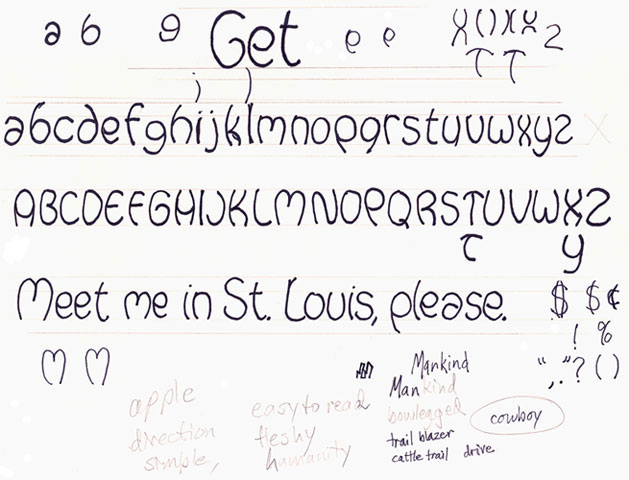 a 6 g Get e e X()XX 2
T T
i )
abcdefghijklmnopqrstuvwxyz x
ABCDEFGHIJKLMNOPQRSTUVWXZ
T y
Meet me in St. Louis, please. $ $ ¢
! %
m m " " ? ( )
, .
Mankind
apple easy to read Mankind
bowlegged cowboy
direction fleshy trail blazer
simple, humanity cattle trail drive